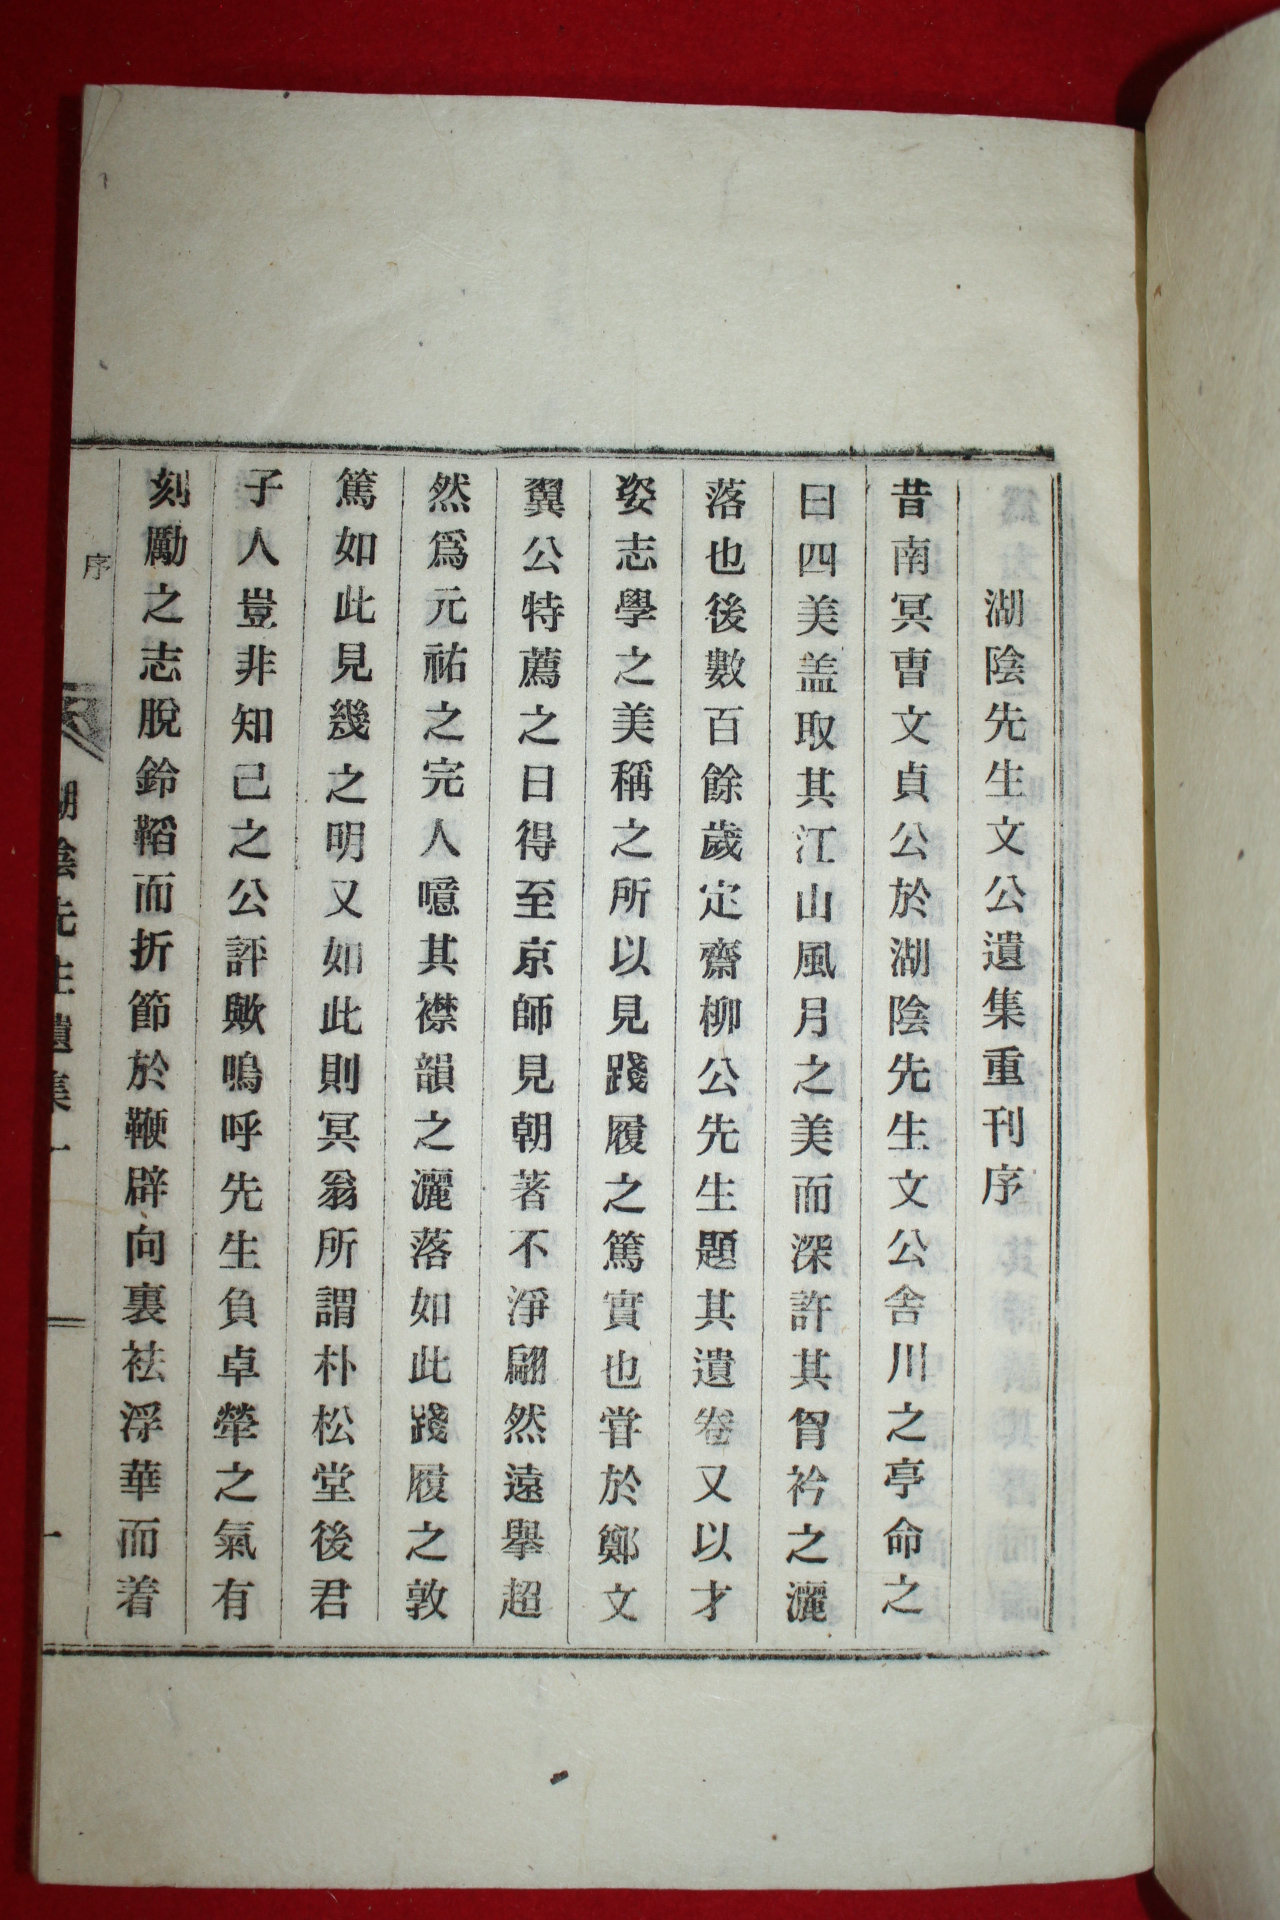 湖陰先生文公遺集重刊序
昔南冥曺文貞公於湖陰先生文公舍川之亭命之
曰四美盖取其江山風月之美而深許其胷衿之灑
落也後數百餘歲定齋柳公先生題其遺卷又以才
姿志學之美稱之所以見踐履之篤實也甞於鄭文
翼公特薦之日得至京師見朝著不淨翩然遠擧超
然爲元祐之完人噫其襟韻之灑落如此踐履之敦
篤如此見幾之明又如此則冥翁所謂朴松堂後君
子人豈非知己之公評歟嗚呼先生負卓犖之氣有
刻勵之志脫鈴韜而折節於鞭辟向裏袪浮華而着
序
湖陰先生遺集一
一